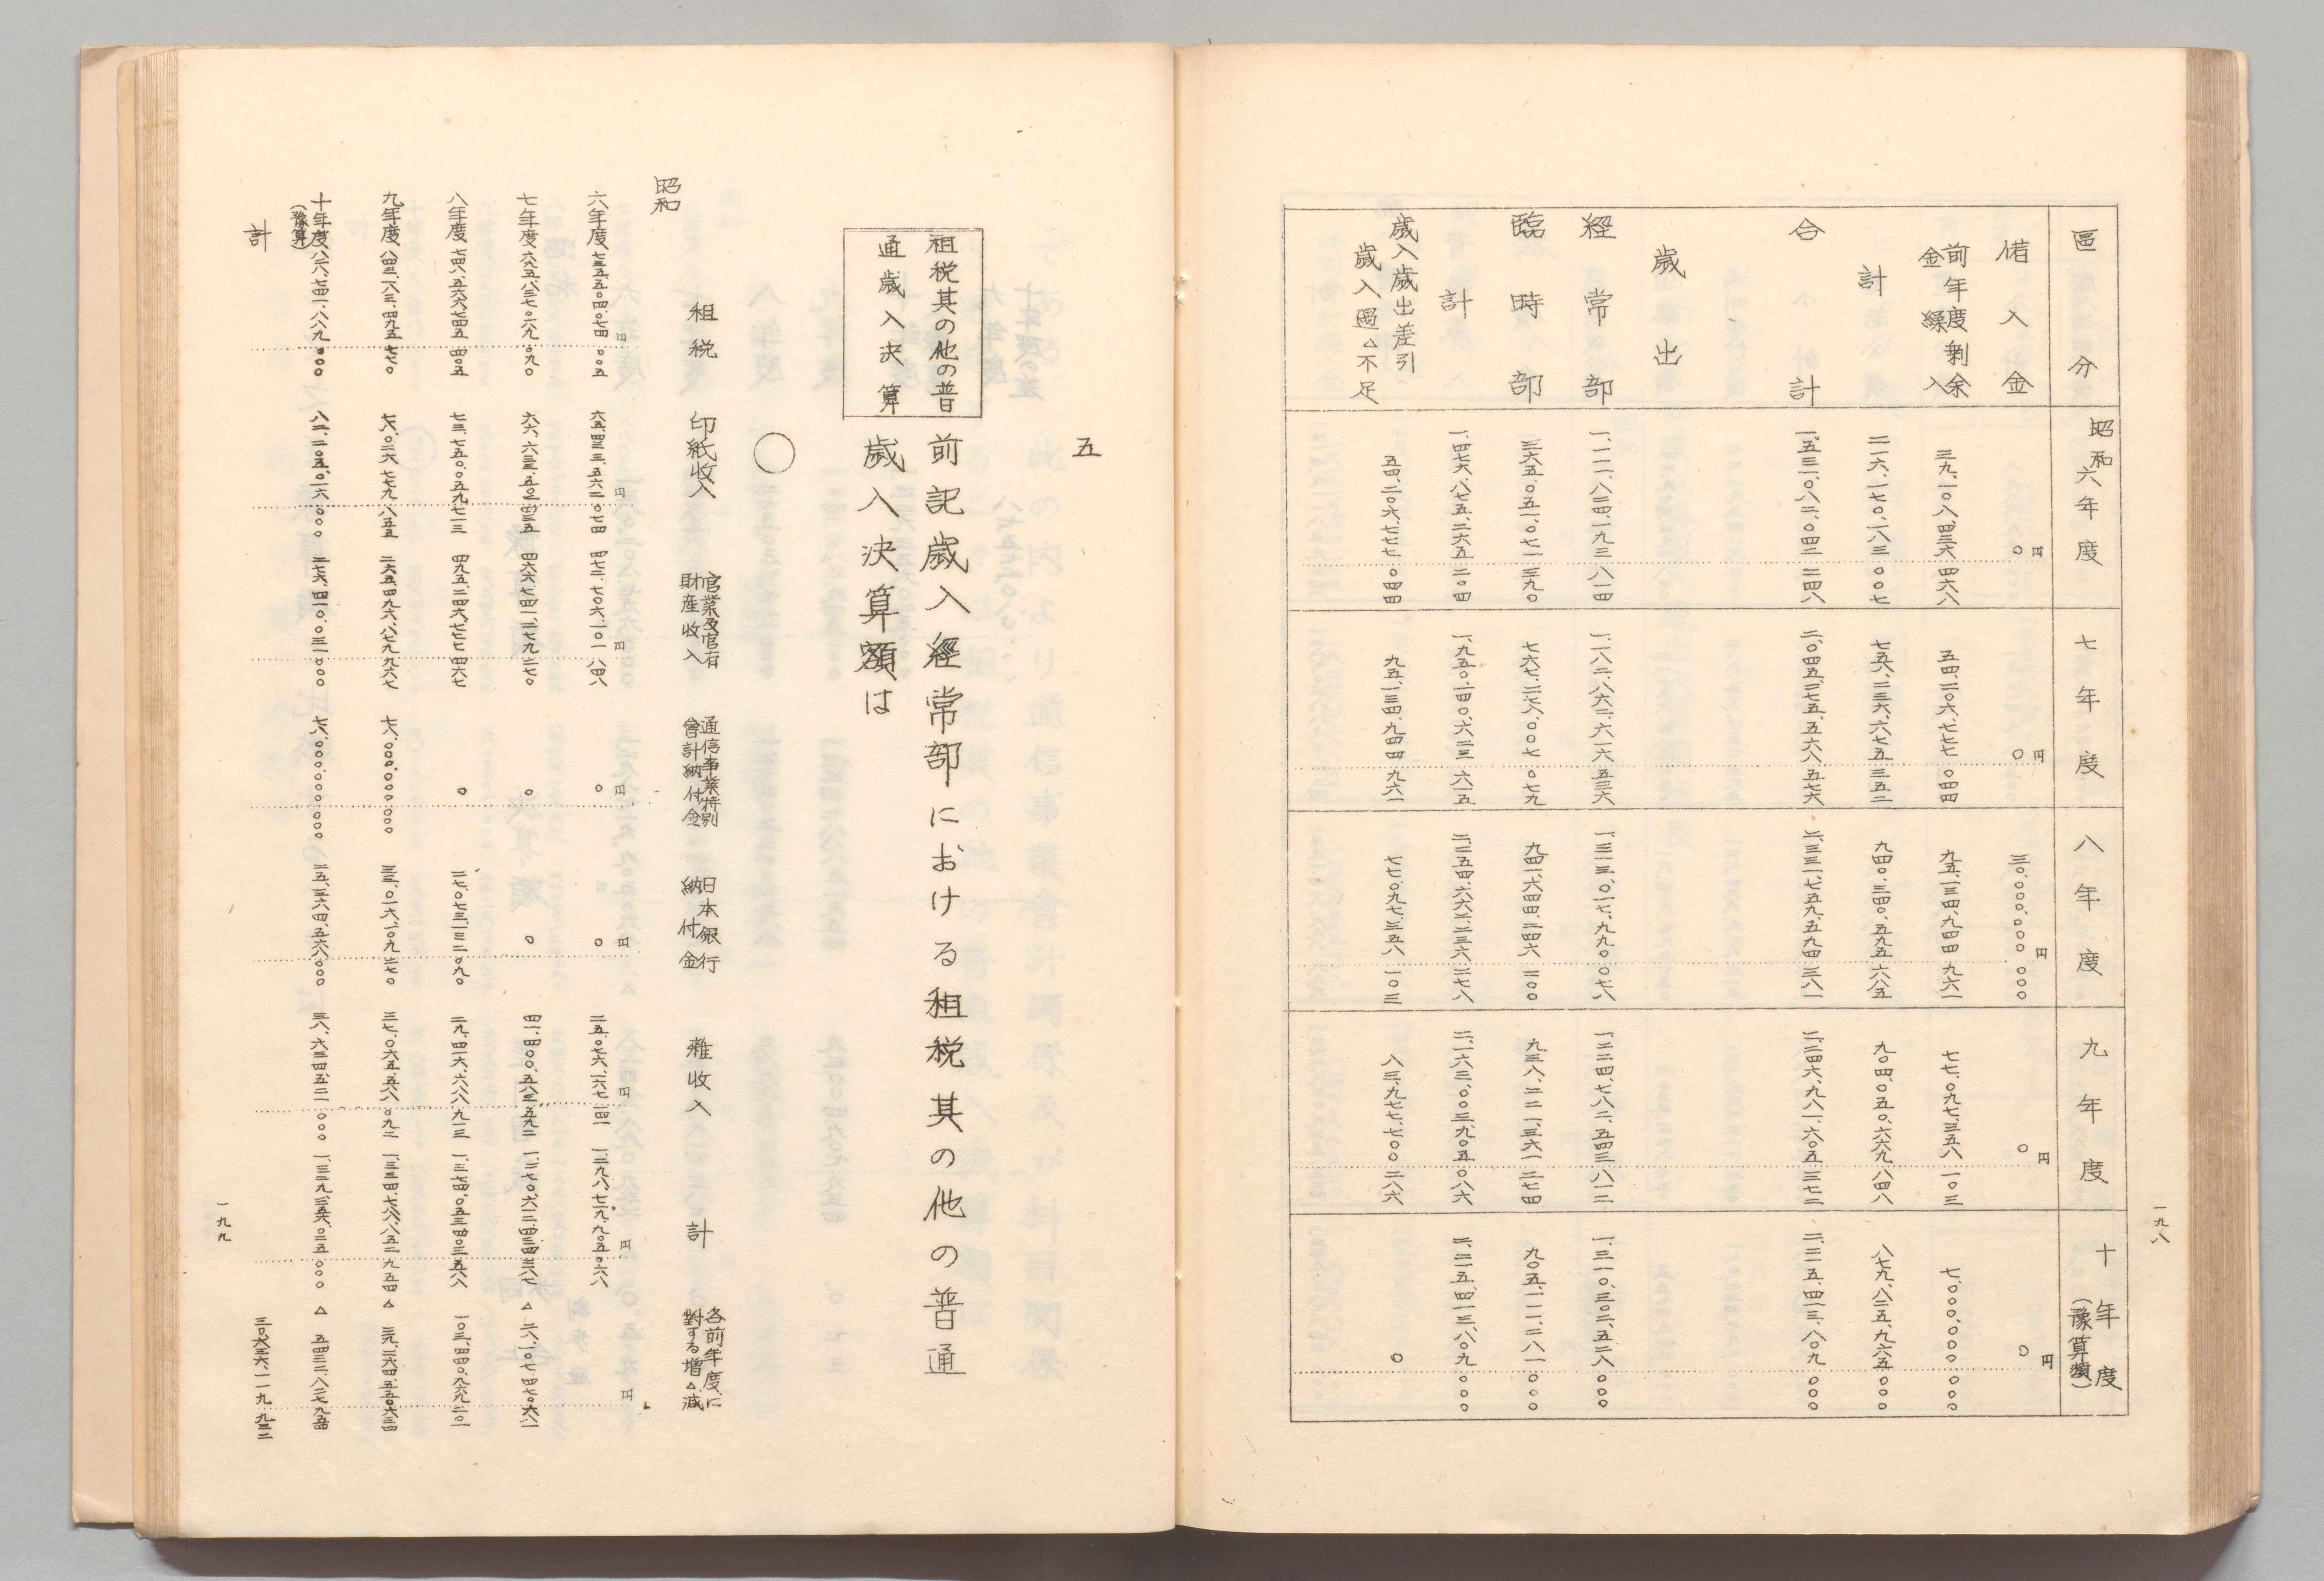 一九八
區分 昭和六年度 七年度 八年度 九年度 十年度(豫算額)
借入金 〇円 〇円 三〇、〇〇〇、〇〇〇円〇〇〇 〇円 〇円
前年度剩余金繰入 三九、一〇八、四三六 四六八 五四、二〇六、七七七 〇四四 九五、一三四、九四四 九六一 七七、〇九七、三五八 一〇三 七、〇〇〇、〇〇〇 〇〇〇
計 二一六、一七〇、一八三 〇〇七 七五八、二三六、六七五 三五二 九四〇、三四〇、五九五 六八五 九〇四、〇五〇、六六九 八四八 八七九、八二五、九六五 〇〇〇
合計 一、五三一、〇八二、〇四二 二四八 二、〇四五、二七五、五六八 五七六 二、三三一、七五九、五九四 三八一 二、二四六、九八一、六〇五 三七二 二、二一五、四一三、八〇九 〇〇〇
歲出
經常部 一、一一一、八二四、一九三 八一四 一、一八二、八六二、六一六 五三六 一、三一三、〇一七、九九〇 〇七八 一、二二四、七八二、五四三 八一二 一、三一〇、三〇二、五二八 〇〇〇
臨時部 三六五、〇五一、〇七一 三九〇 七六七、二七八、〇〇七 〇七九 九四一、六四四、二四六 二〇〇 九三八、二二一、三六一 二七四 九〇五、一一一、二八一 〇〇〇
計 一、四七六、八七五、二六五 二〇四 一、九五〇、一四〇、六二三 六一五 二、二五四、六六二、二三六 二七八 二、一六三、〇〇三、九〇五 〇八六 二、二一五、四一三、八〇九 〇〇〇
歲入歲出差引歲入過△不足 五四、二〇六、七七七 〇四四 九五、一三四、九四四 九六一 七七、〇九七、三五八 一〇三 八三、九七七、七〇〇 二八六 〇
五
租税其の他の普通歲入決算
前記歲入經常部における租税其の他の普通
歲入決算額は
〇
租税 印紙收入 官業及官有財産收入 通信事業特別會計納付金 日本銀行納付金 雜收入 計 各前年度に對する增△減
昭和
六年度 七三五、五〇四、〇七四円〇〇五 六五、四三三、五六二円〇七四 四七二、七〇六、一〇一円八四八 〇円 〇円 二五、〇七六、一六七円一四一 一、二九八、七一九、九〇五円〇六八 円
七年度 六九五、八三七、〇六九 〇九〇 六六、六三三、五〇二 四三五 四六六、七四一、二七九 二七〇 〇 〇 四一、四〇〇、五八三 五九二 一、二七〇、六一二、四三四 三八七 △ 二八、一〇七、四七〇 六八一
八年度 七四八、五六六、七四五 四〇五 七三、七五〇、〇五九 七一三 四九五、二四六、七七七 四六七 〇 二七、〇七三、一三二 〇九〇 二九、四一六、六八八 九一三 一、三七四、〇五三、四〇三 五八八 一〇三、四四〇、九六九 二〇一
九年度 八四三、一八三、四九五 七七〇 七八、〇二六、七七九 八五五 二六五、四九六、八七九 九六七 七八、〇〇〇、〇〇〇 〇〇〇 三三、〇一六、一〇九 二七〇 三七、〇六五、五八八 〇九二 一、三三四、七八八、八五二 九五四 △ 三九、二六四、五五〇 六三四
十年度(豫算) 八二八、七四一、八八九 〇〇〇 八二、二〇五、〇一六 〇〇〇 二七六、四一〇、〇三一 〇〇〇 七八、〇〇〇、〇〇〇 〇〇〇 二五、三六四、五六八 〇〇〇 三八、六三四、五二一 〇〇〇 一、三二九、三五六、〇二五 〇〇〇 △ 五、四三二、八二七 九五四
計 三〇、六三六、一一九 九三二
一九九